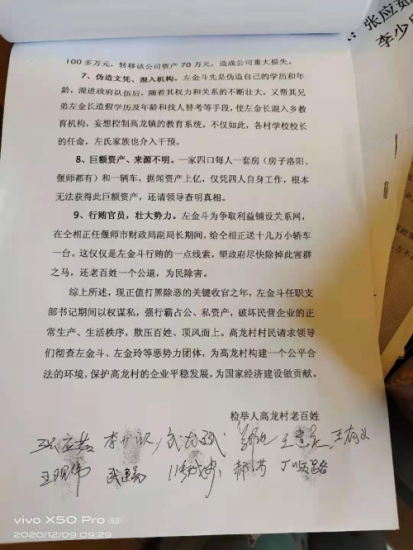 张应
李少
100多万元，转移该公司资产70万元，造成公司重大损失。
7、伪造文凭、混入机构。左金斗先是伪造自己的学历和年
龄，混进政府队伍后，随着其权力和关系的不断壮大，又帮其兄
弟左金长造假学历及年龄和找人替考等手段，使左金长混入乡教
育机构，妄想控制高龙镇的教育系统，不仅如此，各村学校校长
的任命，左氏家族也介入干预。
8、巨额资产、来源不明。一家四口每人一套房（房子洛阳、
偃师都有）和一辆车，据闻资产上亿，仅凭四人自身工作，根本
无法获得此巨额资产，还请领导查明真相。
9、行贿官员，壮大势力。左金斗为争取利益铺设关系网，
在仝相正任偃师市财政局副局长期间，给仝相正送十几万小轿车
一台。这仅仅是左金斗行贿的一点线索，望政府尽快除掉此害群
之马，还老百姓一个公道，为民除害。
综上所述，现正值打黑除恶的关键收官之年，左金斗任职支
部书记期间以权谋私，强行霸占公、私资产，破坏民营企业的正
常生产、生活秩序，欺压百姓、顶风而上。高龙村村民请求领导
们彻查左金斗、左金玲等恶势力团体，为高龙村构建一个公平合
法的环境，保护高龙村的企业平稳发展，为国家经济建设做贡献。
检举人高龙村老百姓
王有义
vivo X50 Pro
2020/12/09 09:29